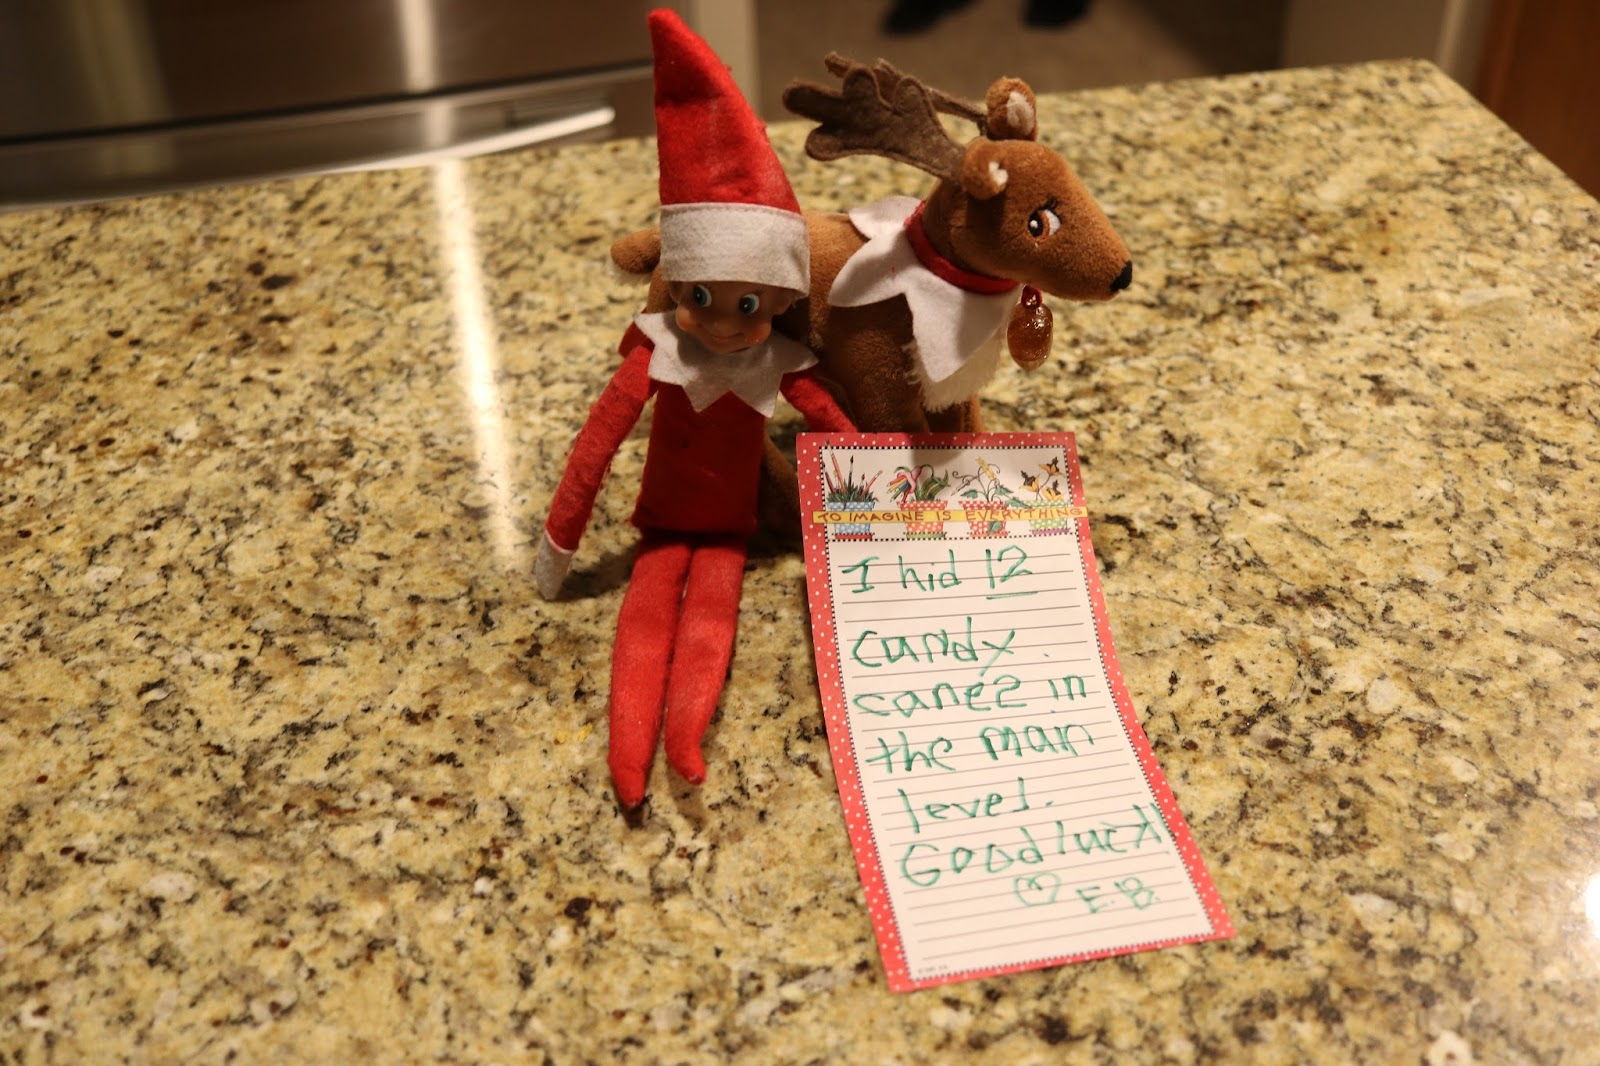 TO IMAGINE IS EVERYTHING
I hid 12
candy
canes in
the main
level.
Good luck!
♡ E.B.